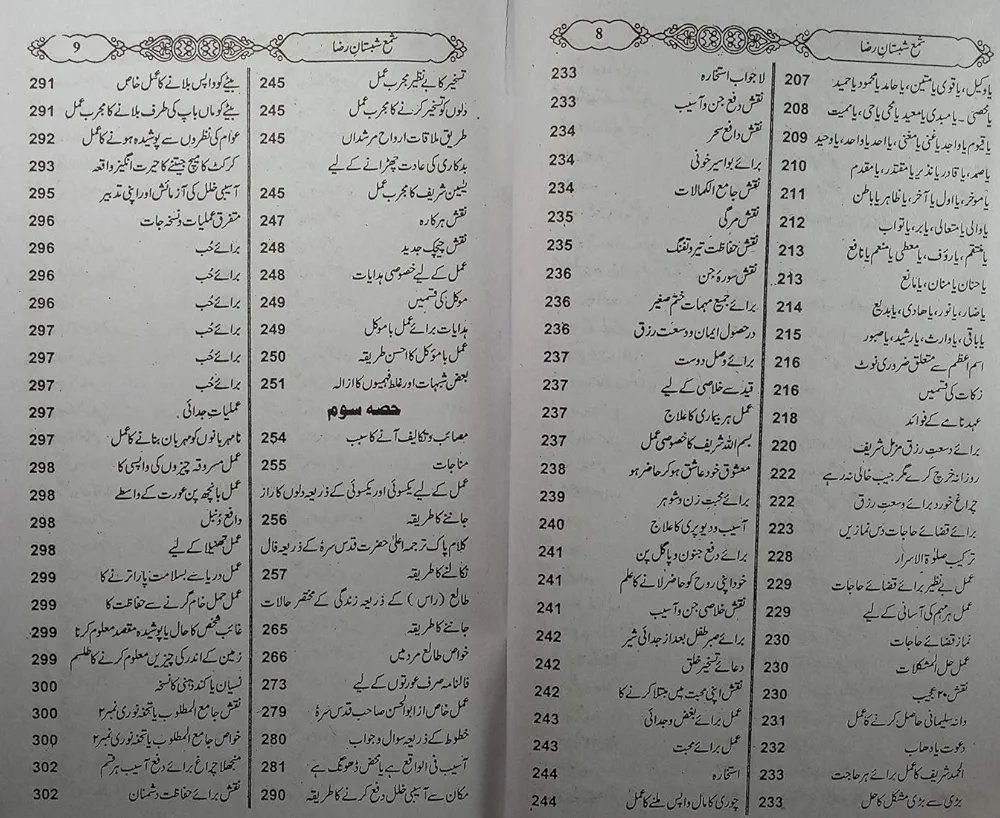 شمع شبستانِ رضا
8
یا وکیل، یا قوی یا متین، یا حامد یا محمود یا حمید 207
یا محصی۔ یا مبدی یا معید یا محی یا حی، یا ممیت 208
یا قیوم یا واجد یا غنی یا مغنی، یا احد یا واحد، یا وحید 209
یا صمد، یا قادر یا نذیر یا مقتدر، یا مقدم 210
یا موخر، یا اول یا آخر، یا ظاہر یا باطن 211
یا والی یا متعالی، یا بر، یا تواب 212
یا منتقم، یا رؤف، یا معطی یا منعم یا نافع 213
یا حنان یا منان، یا مانع 213
یا ضار، یا نور، یا ھادی، یا بدیع 214
یا باقی، یا وارث، یا رشید، یا صبور 215
اسم اعظم سے متعلق ضروری نوٹ 216
زکات کی قسمیں 216
عہد نامے کے فوائد 218
برائے وسعتِ رزق مزمل شریف 220
روزانہ خرچ کرے مگر جیب خالی نہ رہے 222
چراغ خورد برائے وسعتِ رزق 222
برائے قضائے حاجات دس نمازیں 223
ترکیب صلوٰۃ الاسرار 228
عمل بے نظیر برائے قضائے حاجات 229
عمل ہر مہم کی آسانی کے لیے 229
نماز قضائے حاجات 230
عمل حل المشکلات 230
نقش ۲۰ عجیب 230
دانہ سلیمانی حاصل کرنے کا عمل 231
دعوت یا دھاب 232
الحمد شریف کا عمل برائے ہر حاجت 233
بڑی سے بڑی مشکل کا حل 233
لاجواب استخارہ 233
نقش دفع جن و آسیب 233
نقش دافع سحر 234
برائے بواسیر خونی 234
نقش جامع الکمالات 234
نقش مرگی 235
نقش حفاظت تیر و تفنگ 235
نقش سورۂ جن 236
برائے جمیع مہمات ختم صغیر 236
در حصول ایمان و وسعت رزق 236
برائے وصل دوست 237
قید سے خلاصی کے لیے 237
عمل ہر بیماری کا علاج 237
بسم اللہ شریف کا خصوصی عمل 237
معشوق خود عاشق ہو کر حاضر ہو 238
برائے محبت زن و شوہر 239
آسیب و دیو پری کا علاج 240
برائے دفع جنون و پاگل پن 241
خود اپنی روح کو حاضر لانے کا علم 241
نقش خلاصی جن و آسیب 241
برائے صبر طفل بعد از جدائی شیر 242
دعائے تسخیر خلق 242
نقش اپنی محبت میں مبتلا کرنے کا 242
عمل برائے بغض و جدائی 243
عمل برائے محبت 243
استخارہ 244
چوری کا مال واپس ملنے کا عمل 244
شمع شبستانِ رضا
9
تسخیر کا بے نظیر مجرب عمل 245
دلوں کو تسخیر کرنے کا مجرب عمل 245
طریق ملاقات ارواح مرشداں 245
بدکاری کی عادت چھڑانے کے لیے
یٰسین شریف کا مجرب عمل 245
نقش ہرکارہ 247
نقش چیچک جدید 248
عمل کے لیے خصوصی ہدایات 248
موکل کی قسمیں 249
ہدایات برائے عمل با موکل 249
عمل با مؤکل کا احسن طریقہ 250
بعض شبہات اور غلط فہمیوں کا ازالہ 251
حصہ سوم
مصائب و تکالیف آنے کا سبب 254
مناجات 255
عمل کے لیے یکسوئی اور یکسوئی کے ذریعہ دلوں کا راز
جاننے کا طریقہ 256
کلام پاک ترجمہ اعلیٰ حضرت قدس سرہٗ کے ذریعہ فال
نکالنے کا طریقہ 257
طالع (راس) کے ذریعہ زندگی کے مختصر حالات
جاننے کا طریقہ 265
خواص طالع مرد میں 266
فالنامہ صرف عورتوں کے لیے 273
عمل خاص از ابوالحسن صاحب قدس سرہٗ 279
خطوط کے ذریعہ سوال و جواب 280
آسیب فی الواقع ہے یا محض ڈھونگ ہے 281
مکان سے آسیبی خلل دفع کرنے کا طریقہ 290
بیٹے کو واپس بلانے کا عمل خاص 291
بیٹے کو ماں باپ کی طرف بلانے کا مجرب عمل 291
عوام کی نظروں سے پوشیدہ ہونے کا عمل 292
کرکٹ کا میچ جیتنے کا حیرت انگیز واقعہ 293
آسیبی خلل کی آزمائش اور اپنی تدبیر 295
متفرق عملیات و نسخہ جات 296
برائے حُب 296
برائے حُب 296
برائے حُب 296
برائے حُب 297
برائے حُب 297
برائے حُب 297
عملیات جدائی 297
نامہربانوں کو مہربان بنانے کا عمل 297
عمل مسروقہ چیزوں کی واپسی کا 298
عمل بانجھ پن عورت کے واسطے 298
دافع دُنبل 298
عمل تھنیلا کے لیے 298
عمل دریا سے بسلامت پار اترنے کا 299
عمل حمل خام گرنے سے حفاظت کا 299
غائب شخص کا حال یا پوشیدہ مقصد معلوم کرنا 299
زمین کے اندر کی چیزیں معلوم کرنے کا طلسم 299
نسیان یا کند ذہنی کا نسخہ 300
نقش جامع المطلوب یا تحفہ نوری نمبر ۲ 300
خواص جامع المطلوب یا تحفہ نوری نمبر ۲ 300
منجھلا چراغ برائے دفع آسیب ہر قسم 302
نقش برائے حفاظت دشمناں 302